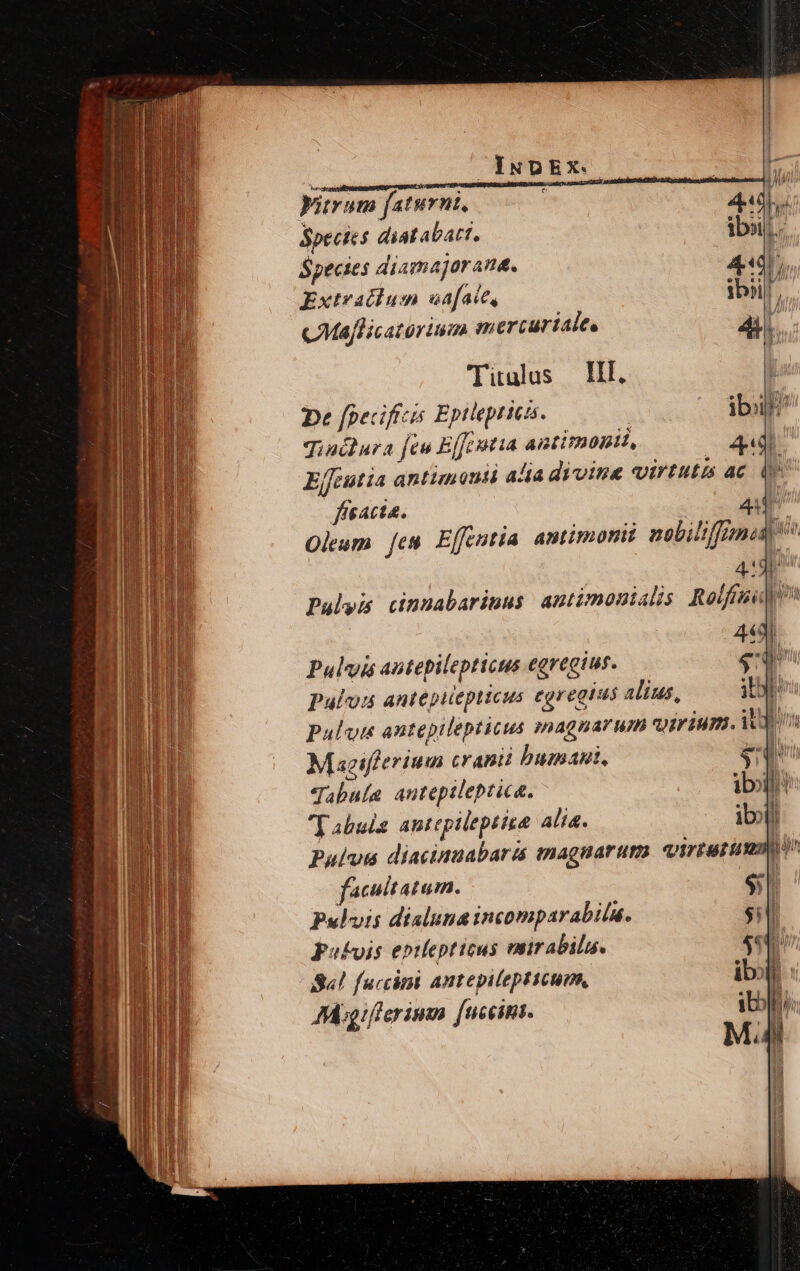 INDEX.
Vitrum ſaturni,
Species diatabaci. ibi
Species diamajoranæ.
Extractum naſale, ibi
Maſticatorium mercuriale.
Titulus III.
De ſpecificis Epilepticis. ibi
Tinctura ſeu Eſſentia antimonii,
Eſſentia antimonii alia divinæ virtutis ac
ficacia.
Oleum ſeu Eſſentia antimonii nobiliſſima
Pulvis cinnabarinus antimonialis Rolfin
Pulvis antepilepticus egregius.
Pulvis antepilepticus egregius alius,
Pulvis antepilepticus magnarum virium.
Magiſterium cranii humani,
Tabulæ antepilepticæ. ibi
Tabulæ antepilepticæ aliæ. ibi
Pulvis diacinnabaris magnarum virtutum
facultatum.
Pulvis dialunæ incomparabilis.
Pulvis epilepticus mirabilis.
Sal ſuccini antepilepticum, ibi
Magiſterium ſuccini.